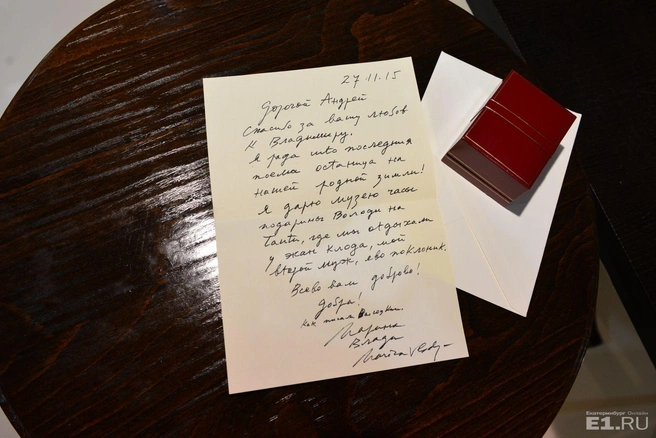 27.11.15
Дорогой Андрей
Спасибо за вашу любов
к Владимиру.
я рада што последния
поема останица на
нашей родной зимли!
Я дарю музею часы
подарины Володи на
таити, где мы отдыхали
у жан клода, мой
второй муж, ево поклоник.
Всево вам доброво!
Добра!
Как писал Высоцкий.
Марина
Влади
Marina Vlady
Екатеринбург Онлайн
E1.RU